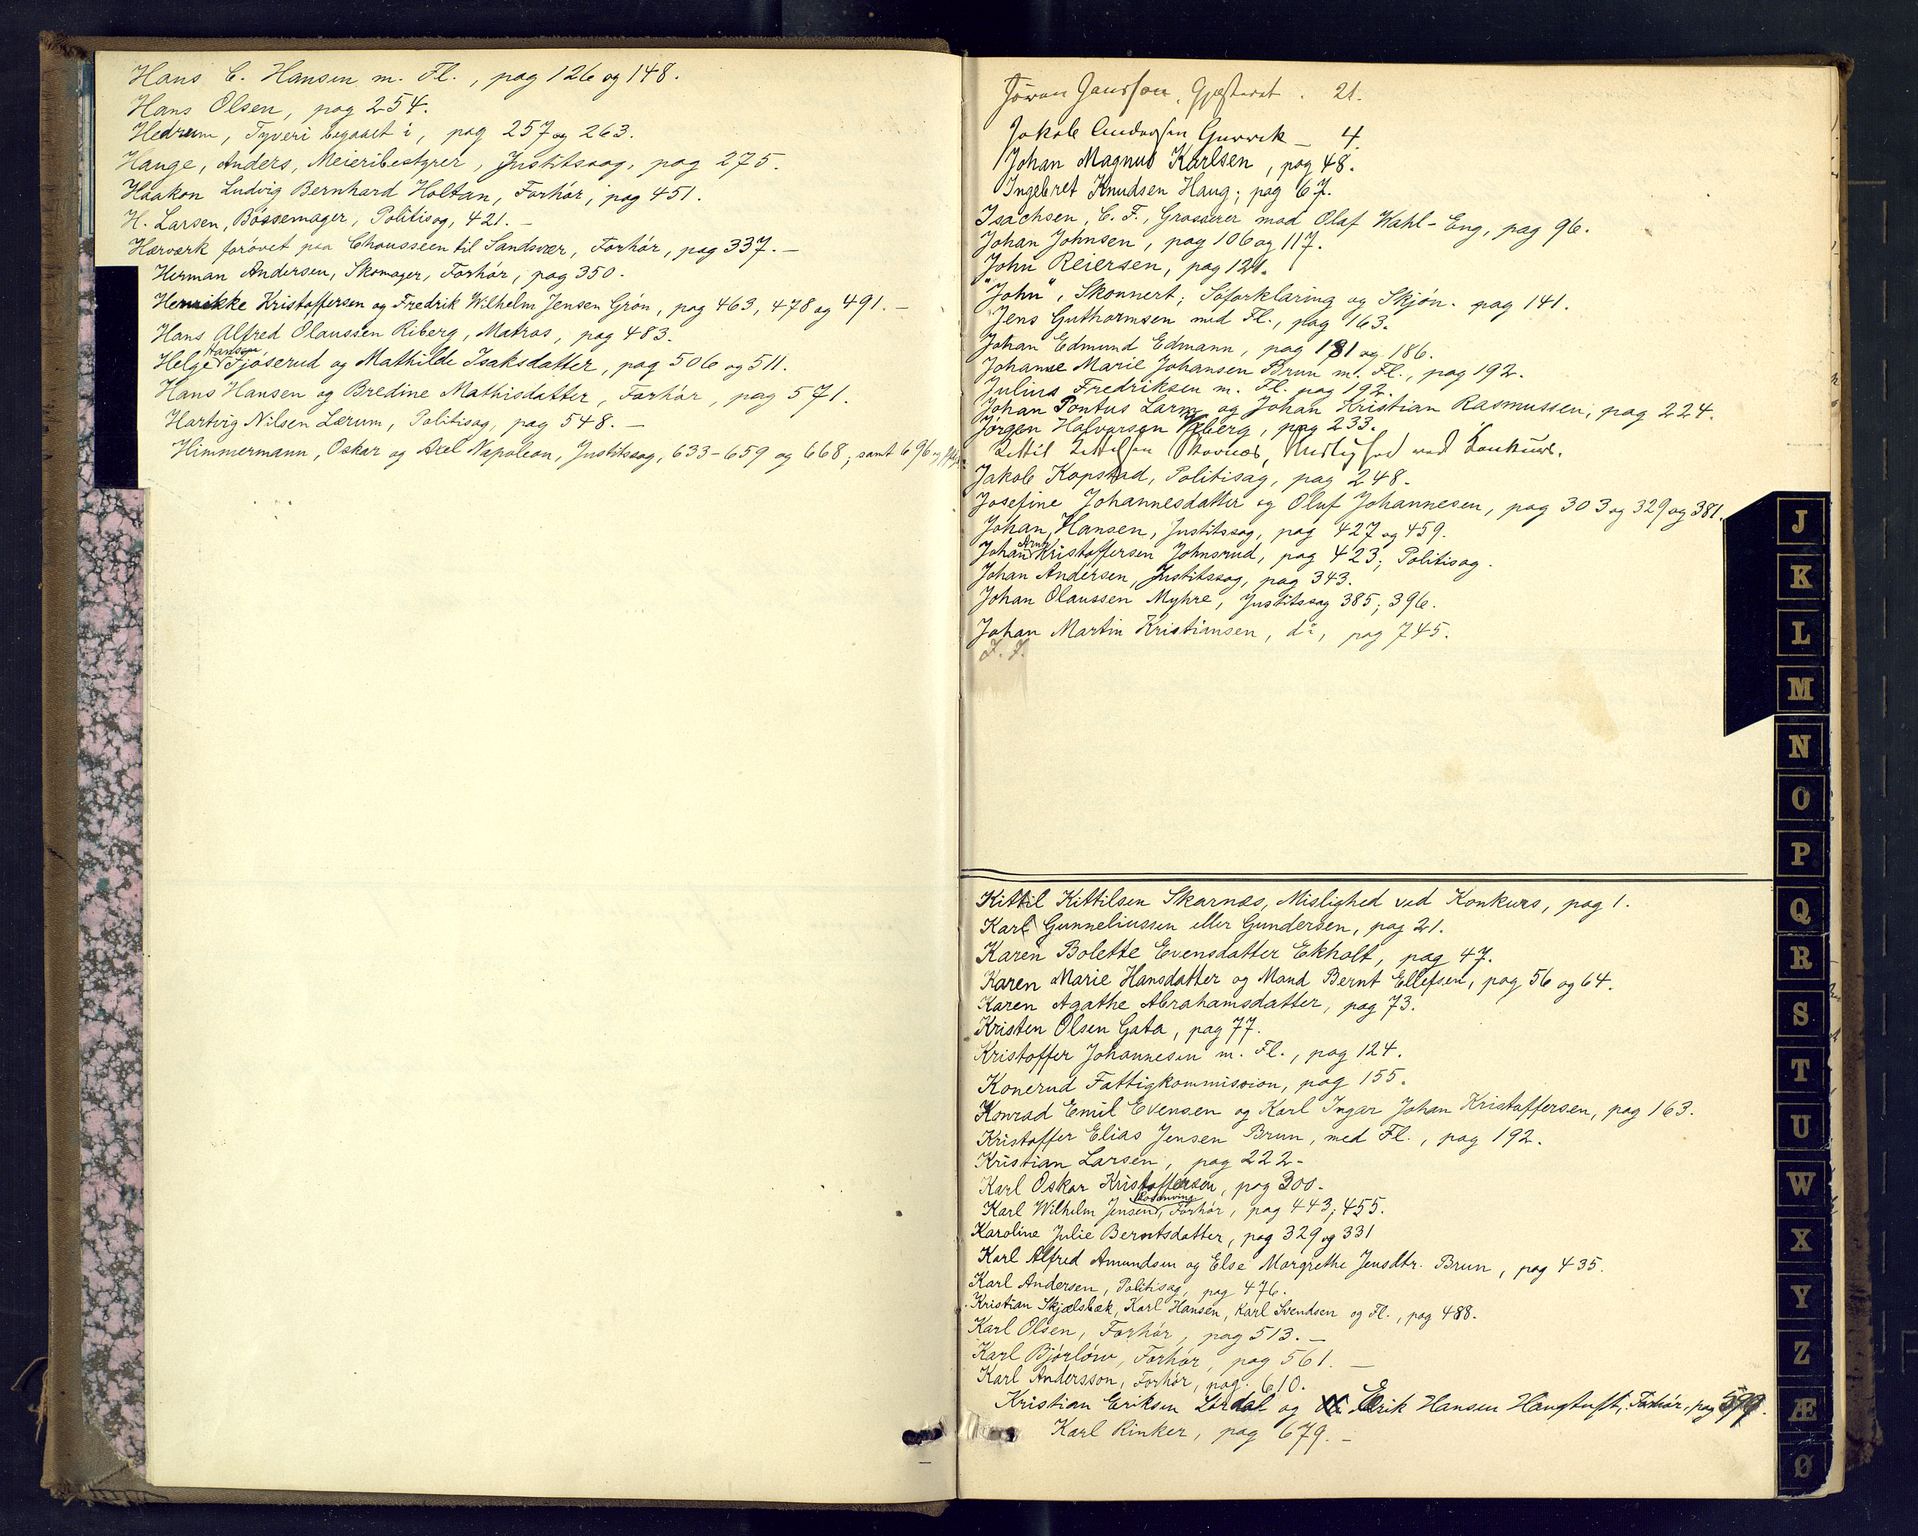 Hans C. Hansen m. Fl., pag 126 og 148.
Hans Olsen, pag 254.
Hedrum, Tyveri begaaet i, pag 257 og 263.
Hauge, Anders, Meieribestyrer, Justitssag, pag 275.
Haakon Ludvig Bernhard Holtan, Forhør, pag 451.
H. Larsen, Bøssemager, Politisag, 421. –
Hærværk forøvet paa Chousséen til Sandsvær, Forhør, pag 337. –
Herman Andersen, Skomager, Forhør, pag 350.
Henrikke Kristoffersen og Fredrik Wilhelm Jensen Grøn, pag 463, 478 og 491. –
Hans Alfred Olaussen Riberg, Matros, pag 483.
Helge Hansen Tjøserud og Mathilde Isaksdatter, pag 506 og 511.
Hans Hansen og Bredine Mathisdatter, Forhør, pag 571.
Hartvig Nilsen Lærum, Politisag, pag 548. –
Himmermann, Oskar og Axel Napoleon, Justitssag, 633–659 og 668; samt 696 og
Jøran Jansson, Gjæsteret. 21.
Jakob Andersen Gurvik – 4.
Johan Magnus Karlsen, pag 48.
Ingebret Knudsen Haug, pag 67.
Isachsen, C. F., Grosserer mod Olaf Wahl-Eng, pag 96.
Johan Johnsen, pag 106 og 117.
John Reiersen, pag 121.
"John", Skonnert, Søforklaring og Skjøn. pag 141.
Jens Guthormsen med Fl., pag 163.
Johan Edmund Edmann, pag 181 og 186.
Johanne Marie Johansen Brun m. Fl., pag 192.
Julius Fredriksen m. Fl. pag 192.
Johan Pontus Larm og Johan Kristian Rasmussen, pag 224.
Jørgen Halvorsen Aaberg, pag 233.
Kittil Kittelsen Skornes, Mislighed ved Konkurs.
Jakob Kopstad, Politisag, pag 248.
Josefine Johannesdatter og Oluf Johannesen, pag 303 og 329 og 381.
Johan Hansen, Justitssag, pag 427 og 459.
Johan Arnt Kristoffersen Johnsrud, pag 423; Politisag.
Johan Andersen, Justitssag, pag 343.
Johan Olaussen Myhre, Justitssag 385; 396.
Johan Martin Kristiansen, do, pag 745.
J. J.
Kittil Kittilsen Skarnæs, Mislighed ved Konkurs, pag 1.
Karl Gunneliussen eller Gundersen, pag 21.
Karen Bolette Evensdatter Ekholt, pag 47.
Karen Marie Hansdatter og Mand Bernt Ellefsen, pag 56 og 64.
Karen Agathe Abrahamsdatter, pag 73.
Kristen Olsen Gata, pag 77.
Kristoffer Johannesen m. Fl., pag 124.
Konerud Fattigkommission, pag 155.
Konrad Emil Evensen og Karl Ingar Johan Kristoffersen, pag 163.
Kristoffer Elias Jensen Brun, med Fl., pag 192.
Kristian Larsen, pag 222 –
Karl Oskar Kristoffersen, pag 300.
Karl Wilhelm Jensen Rosenving, Forhør, pag 443, 455.
Karoline Julie Berntsdatter, pag 329 og 331
Karl Alfred Amundsen og Else Margrethe Jensdtr. Brun, pag 435.
Karl Andersen, Politisag, pag 476.
Kristian Skjælsbæk, Karl Hansen, Karl Svendsen og Fl., pag 488.
Karl Olsen, Forhør, pag 513. –
Karl Bjørløw, Forhør, pag 561. –
Karl Andersson, Forhør, pag. 610.
Kristian Eriksen Lørdal og Erik Hansen Haugtuft, Forhør, pag
Karl Rinker, pag 679. –
J
K
L
M
N
O
P
Q
R
S
T
U
W
X
Y
Z
Æ
Ø